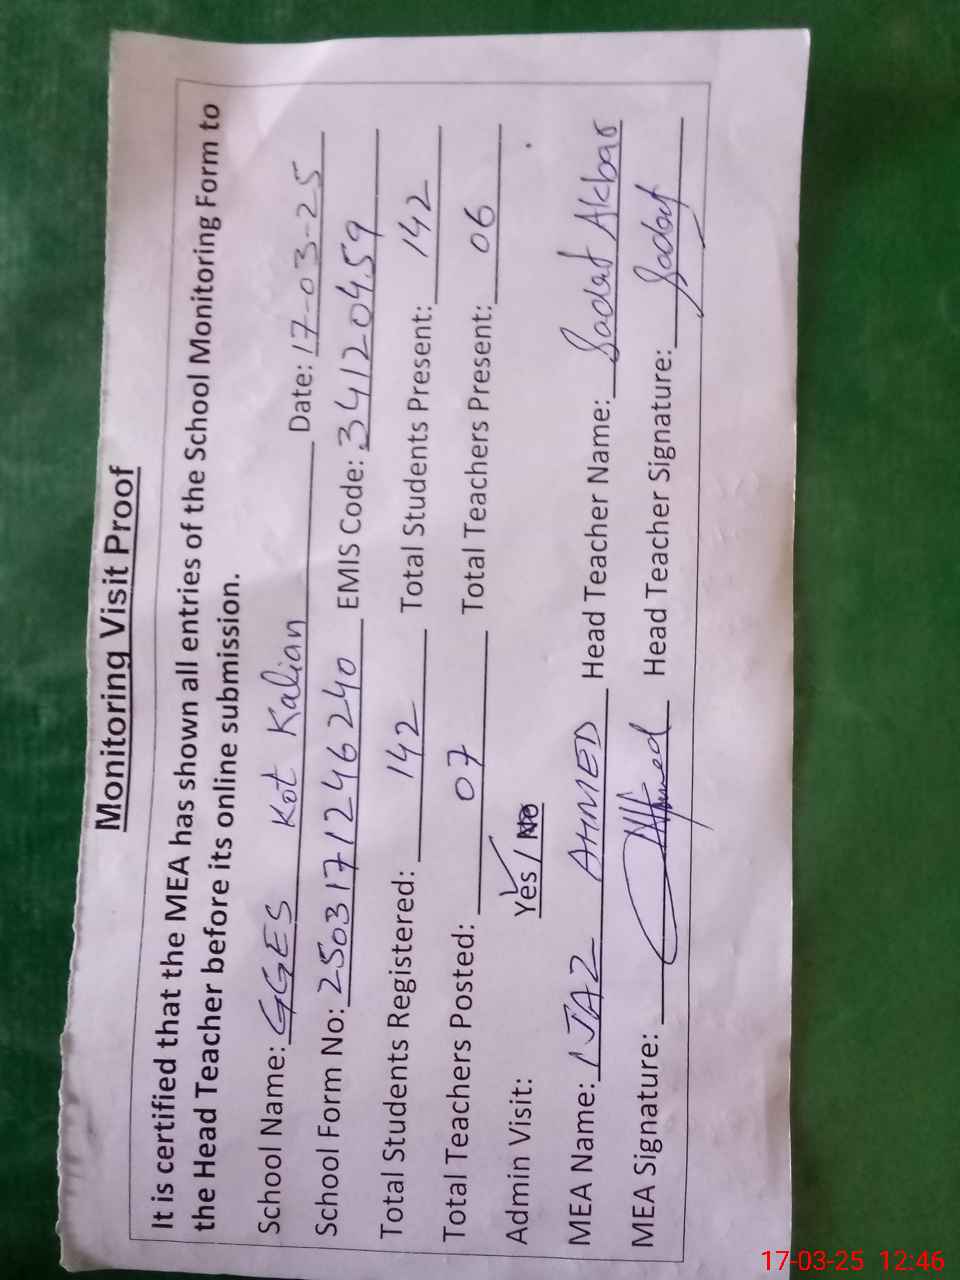 Monitoring Visit Proof
It is certified that the MEA has shown all entries of the School Monitoring Form to
the Head Teacher before its online submission.
School Name: GGES Kot Kalian Date: 17-03-25
School Form No: 2503171246240 EMIS Code: 34120459
Total Students Registered: 142 Total Students Present: 142
Total Teachers Posted: 07 Total Teachers Present: 06
Admin Visit: Yes / No
MEA Name: IJAZ AHMED Head Teacher Name: Sadaf Akbar
MEA Signature: Ahmed Head Teacher Signature: Sadaf
17-03-25 12:46